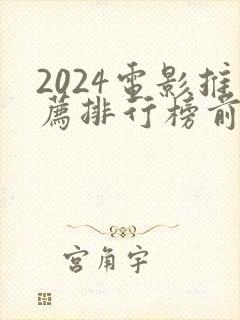 2024電影推
薦排行榜前
宮角宇